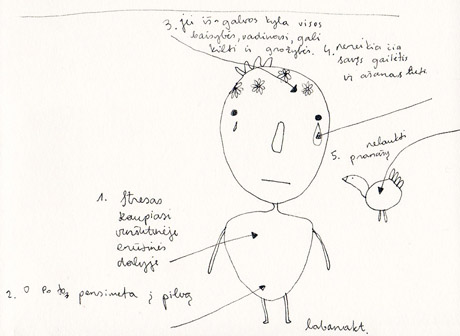 3. jei iš galvos kyla visos
baisybės, vadinasi, gali
kilti ir grožybės.
4. nereikia čia
savęs gailėtis
ir ašaras lieti
5. nelaukti
pranašų
1. Stresas
kaupiasi
viršutinėje
krūtinės
dalyje
2. O po to persimeta į pilvą
labanakt.